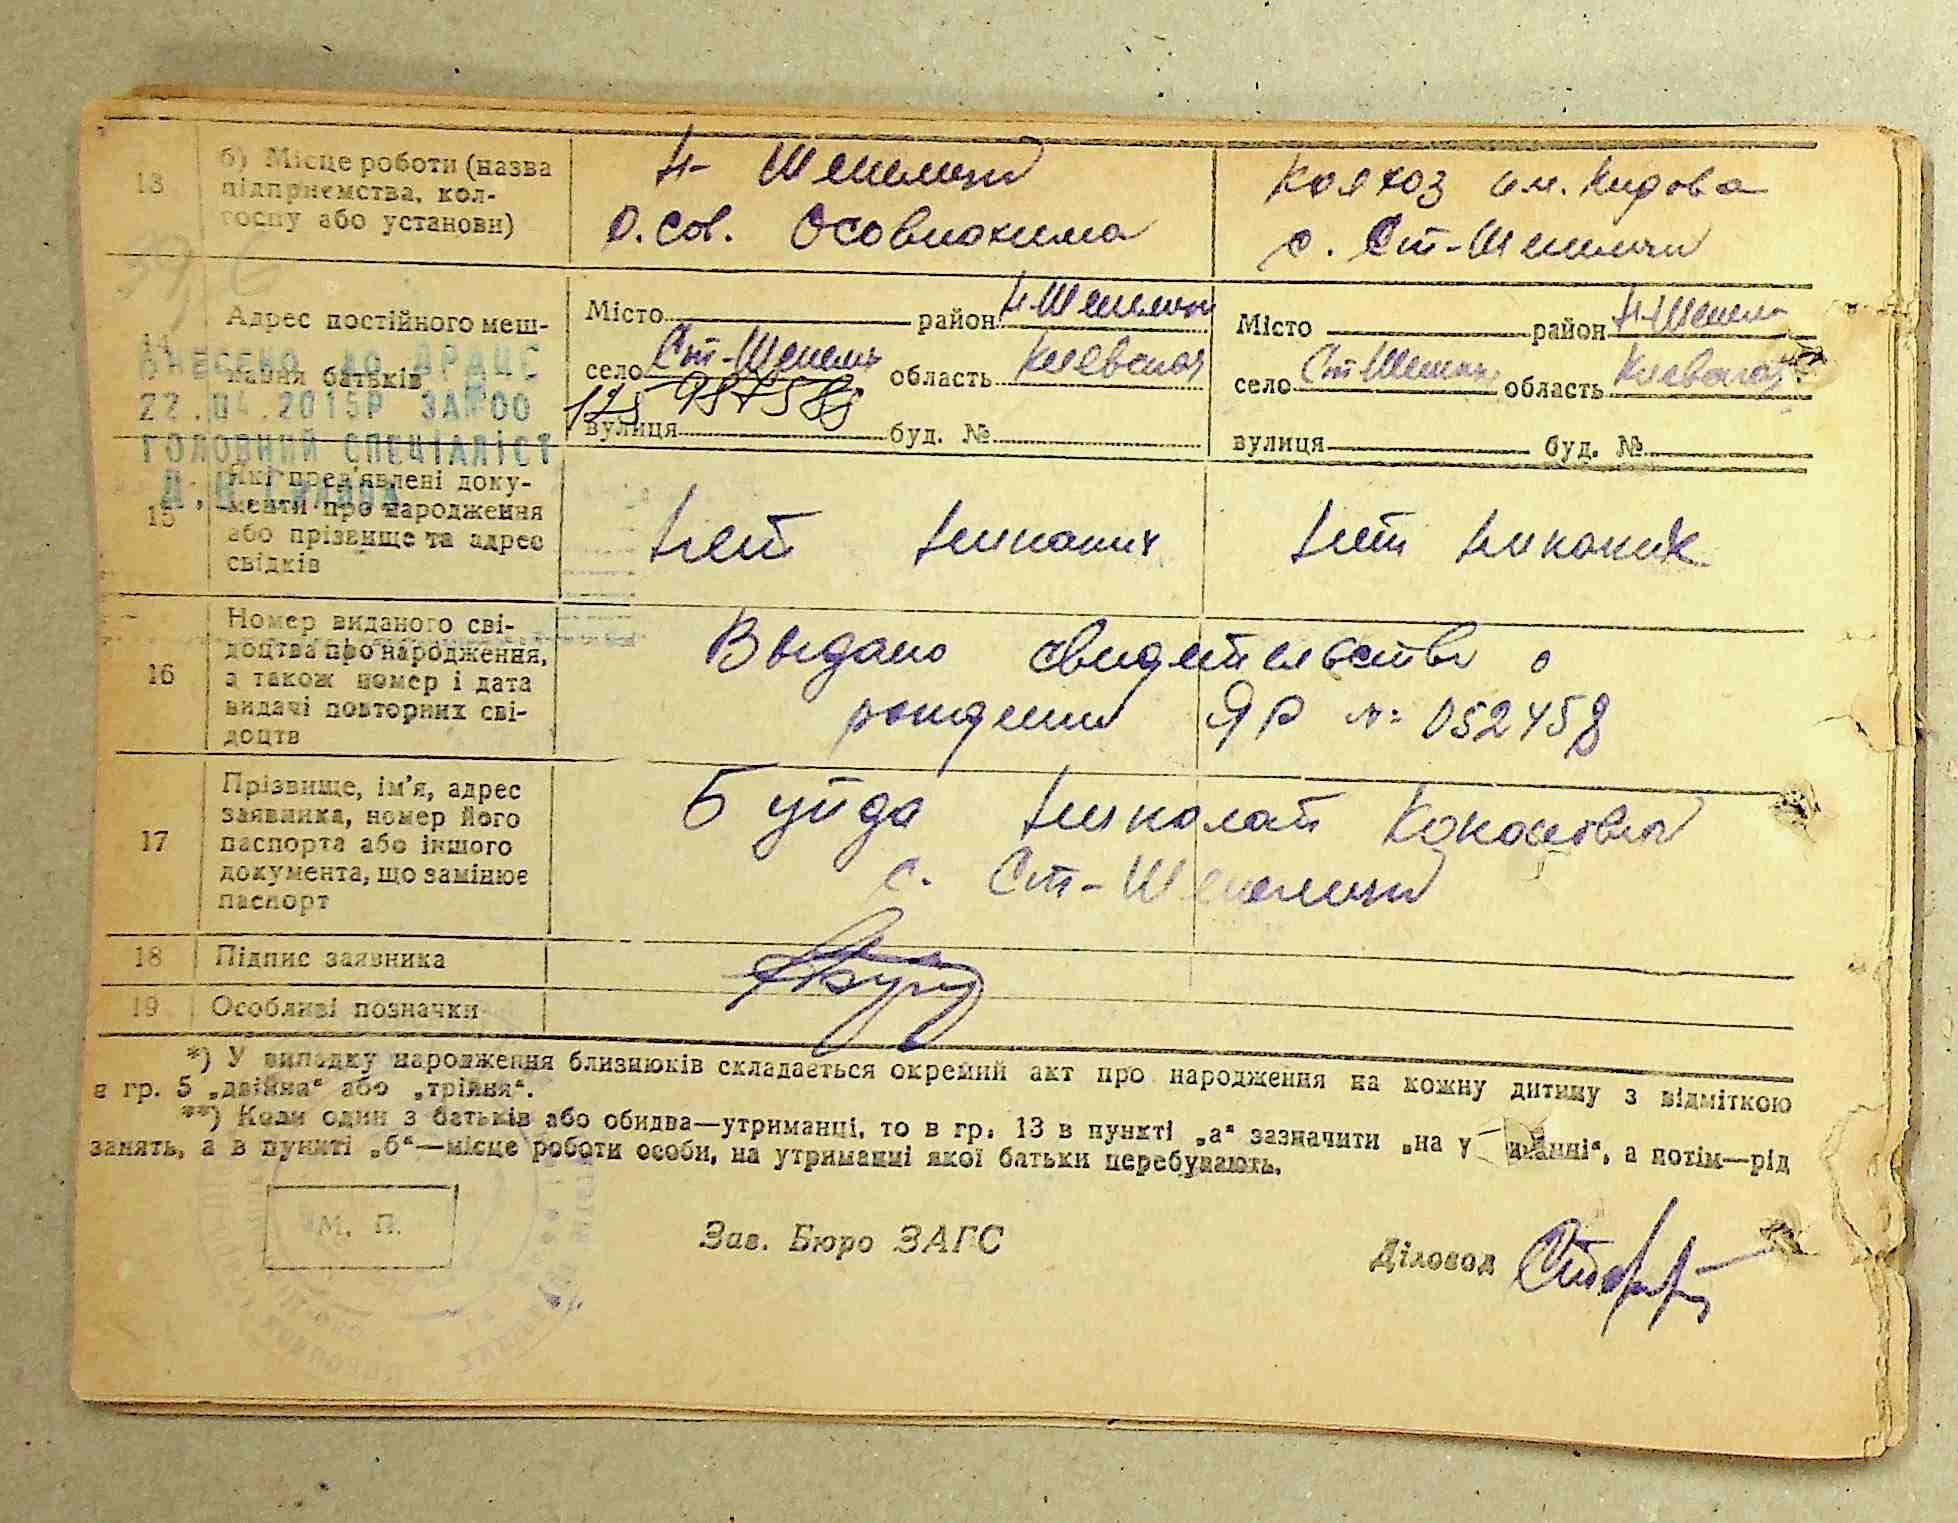 13
б) Місце роботи (назва
підприємства, кол-
госпу або установи)
Н-Шепеличи
О. Сов. Осовиахима
Колхоз им. Кирова
с. Ст-Шепеличи
14
Адрес постійного меш-
кання батьків
Місто район Н-Шепеличи
село Ст-Шепели область Киевская
125 98758
вулиця буд. №
Місто район Н-Шепели
село Ст-Шепели область Киевская
вулиця буд. №
ВНЕСЕНО ДО ДРАЦС
22.04.2015Р ЗА №00
ГОЛОВНИЙ СПЕЦІАЛІСТ
15
Які пред'явлені доку-
менти про народження
або прізвище та адрес
свідків
Нет никаких
Нет никаких
16
Номер виданого сві-
доцтва про народження,
а також номер і дата
видачі повторних сві-
доцтв
Выдано свидетельство о
рождении ЯР № 052458
17
Прізвище, ім'я, адрес
заявника, номер його
паспорта або іншого
документа, що замінює
паспорт
Буйда Николай Кононович
с. Ст-Шепеличи
18
Підпис заявника
19
Особливі позначки
*) У випадку народження близнюків складається окремий акт про народження на кожну дитину з відміткою
в гр. 5 „двійня“ або „трійня“.
**) Коли один з батьків або обидва—утриманці, то в гр. 13 в пункті „а“ зазначити „на у иманні“, а потім—рід
занять, а в пункті „б“—місце роботи особи, на утриманні якої батьки перебувають.
М. П.
Зав. Бюро ЗАГС
Діловод